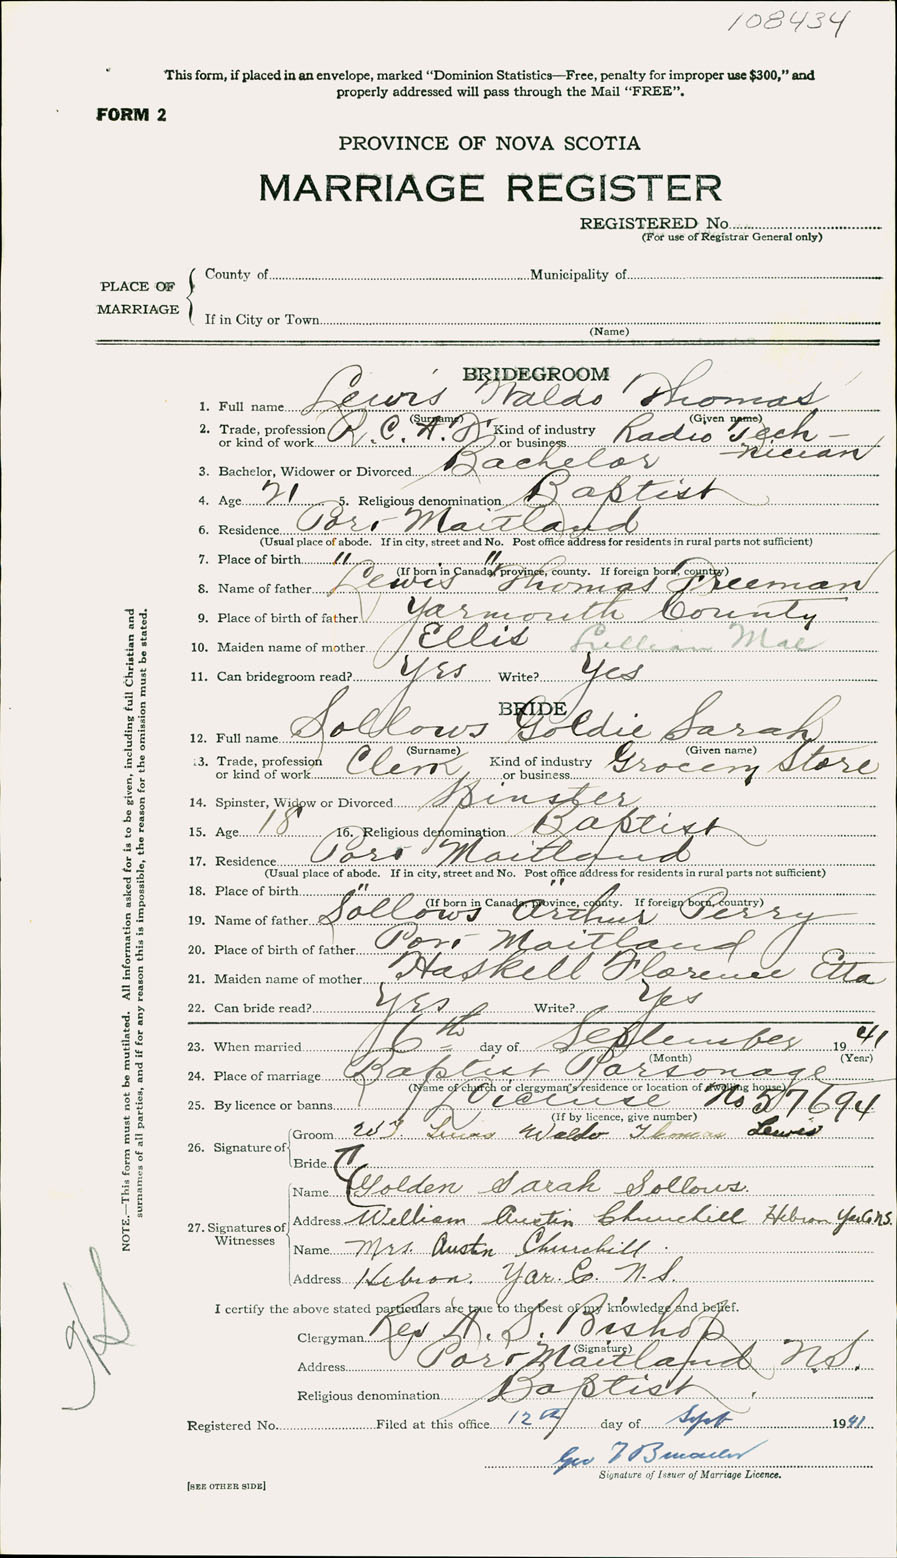 108434
This form, if placed in an envelope, marked “Dominion Statistics—Free, penalty for improper use $300,” and
properly addressed will pass through the Mail “FREE”.
FORM 2
PROVINCE OF NOVA SCOTIA
MARRIAGE REGISTER
REGISTERED No
(For use of Registrar General only)
PLACE OF MARRIAGE
County of Municipality of
If in City or Town
(Name)
BRIDEGROOM
1. Full name Lewis Waldo Thomas
(Surname) (Given name)
2. Trade, profession or kind of work R.C.A.F. Kind of industry or business Radio Tech-nician
3. Bachelor, Widower or Divorced Bachelor
4. Age 21 5. Religious denomination Baptist
6. Residence Port Maitland
(Usual place of abode. If in city, street and No. Post office address for residents in rural parts not sufficient)
7. Place of birth " "
(If born in Canada, province, county. If foreign born, country)
8. Name of father Lewis Thomas Freeman
9. Place of birth of father Yarmouth County
10. Maiden name of mother Ellis Lillian Mae
11. Can bridegroom read? Yes Write? Yes
BRIDE
12. Full name Sollows Goldie Sarah
(Surname) (Given name)
13. Trade, profession or kind of work Clerk Kind of industry or business Grocery Store
14. Spinster, Widow or Divorced Spinster
15. Age 18 16. Religious denomination Baptist
17. Residence Port Maitland
(Usual place of abode. If in city, street and No. Post office address for residents in rural parts not sufficient)
18. Place of birth " "
(If born in Canada, province, county. If foreign born, country)
19. Name of father Sollows Arthur Perry
20. Place of birth of father Port Maitland
21. Maiden name of mother Haskell Florence Etta
22. Can bride read? Yes Write? Yes
23. When married 6th day of September 1941
(Month) (Year)
24. Place of marriage Baptist Parsonage
(Name of church or clergyman's residence or location of dwelling house)
25. By licence or banns Licinse No 57694
(If by licence, give number)
26. Signature of Groom Waldo Thomas Lewis
Bride
27. Signatures of Witnesses
Name Golden Sarah Sollows.
Address William Austin Churchill Hebron Yar Co N.S.
Name Mrs. Austin Churchill.
Address Hebron. Yar. Co. N.S.
I certify the above stated particulars are true to the best of my knowledge and belief.
Clergyman Rev A. S. Bishop
(Signature)
Address Port Maitland N.S.
Religious denomination Baptist
Registered No. Filed at this office 12th day of Sept 1941
Geo
Signature of Issuer of Marriage Licence.
[SEE OTHER SIDE]
NOTE.—This form must not be mutilated. All information asked for is to be given, including full Christian and
surnames of all parties, and if for any reason this is impossible, the reason for the omission must be stated.